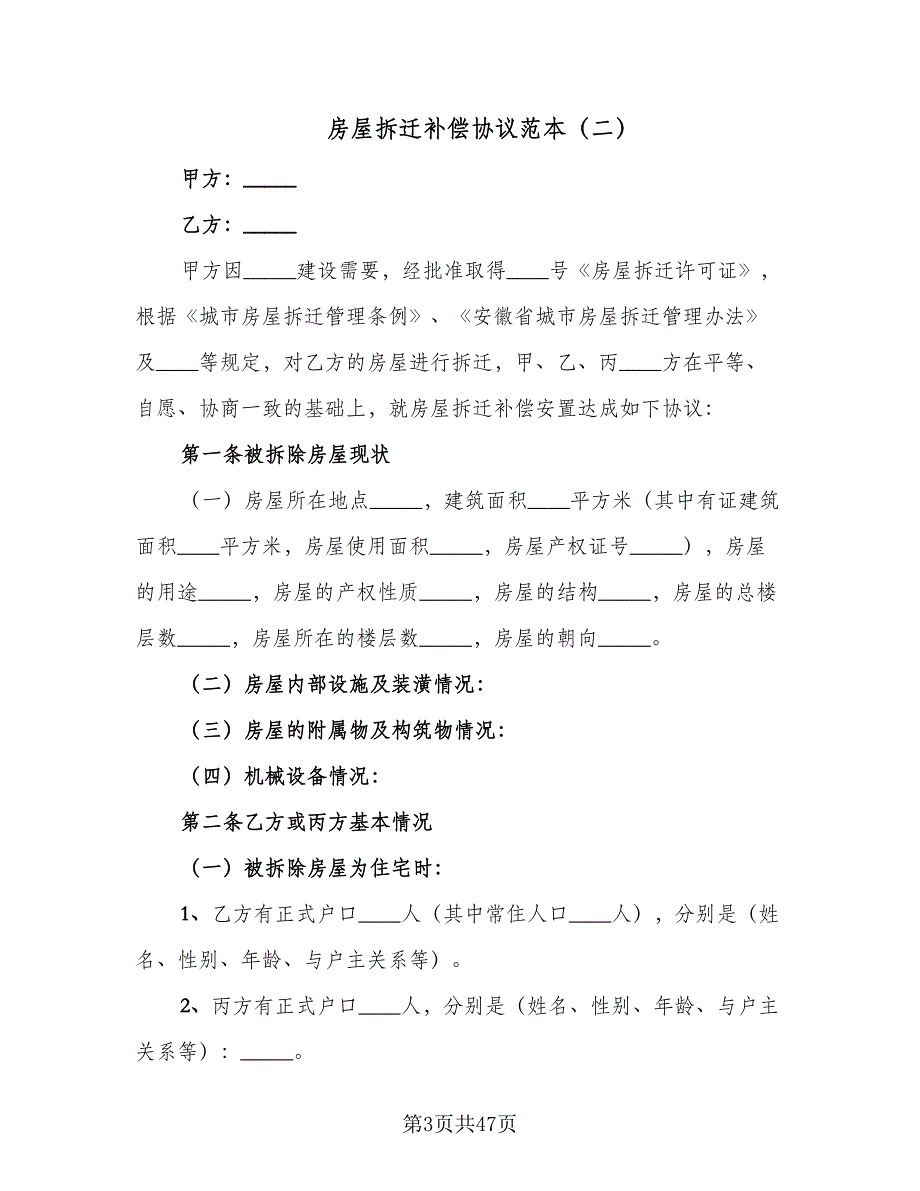 房屋拆迁补偿协议范本（二）
甲方：_____
乙方：_____
甲方因_____建设需要，经批准取得____号《房屋拆迁许可证》，
根据《城市房屋拆迁管理条例》、《安徽省城市房屋拆迁管理办法》
及____等规定，对乙方的房屋进行拆迁，甲、乙、丙____方在平等、
自愿、协商一致的基础上，就房屋拆迁补偿安置达成如下协议：
第一条被拆除房屋现状
（一）房屋所在地点_____，建筑面积____平方米（其中有证建筑
面积____平方米，房屋使用面积_____，房屋产权证号_____），房屋
的用途_____，房屋的产权性质_____，房屋的结构_____，房屋的总楼
层数_____，房屋所在的楼层数_____，房屋的朝向_____。
（二）房屋内部设施及装潢情况：
（三）房屋的附属物及构筑物情况：
（四）机械设备情况：
第二条乙方或丙方基本情况
（一）被拆除房屋为住宅时：
1、乙方有正式户口____人（其中常住人口____人），分别是（姓
名、性别、年龄、与户主关系等）。
2、丙方有正式户口____人，分别是（姓名、性别、年龄、与户主
关系等）：_____。
第3页共47页